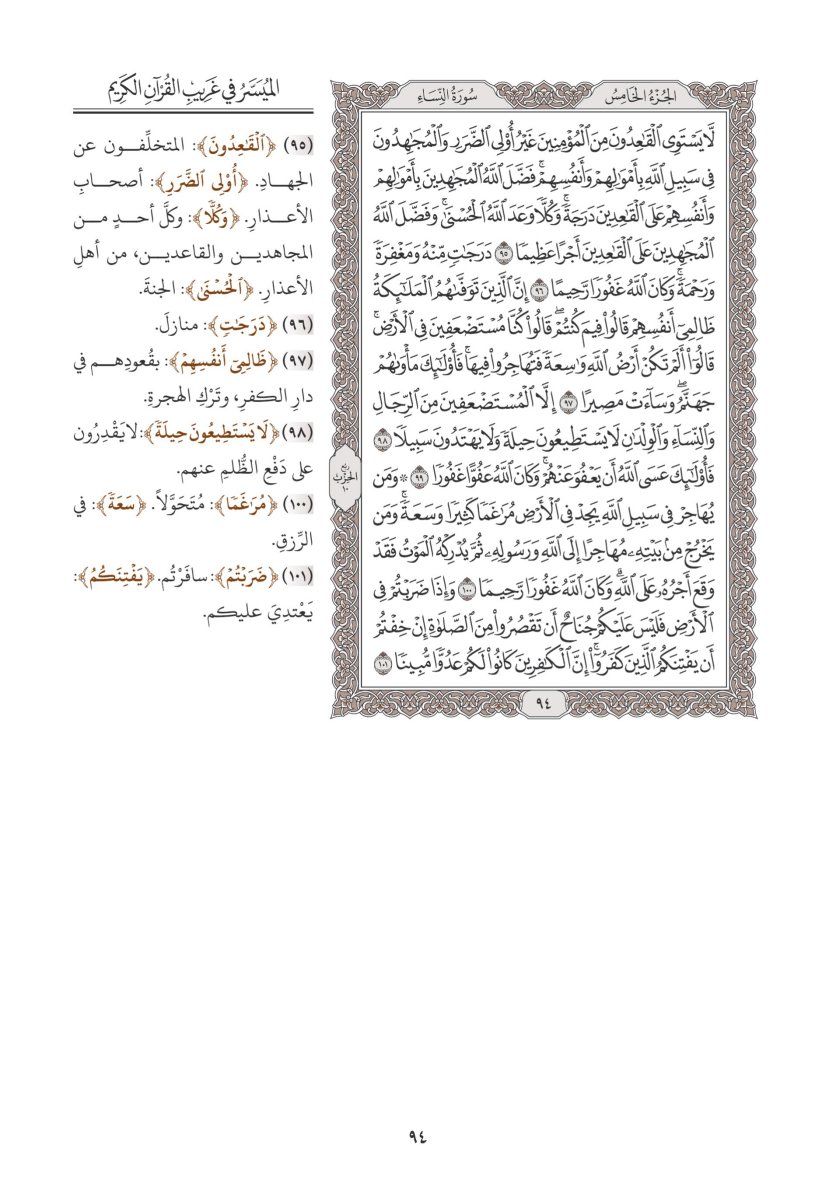 الجُزْءُ الخَامِسُ
سُورَةُ النِّسَاءِ
لَّا يَسْتَوِي الْقَٰعِدُونَ مِنَ الْمُؤْمِنِينَ غَيْرُ أُوْلِي الضَّرَرِ وَالْمُجَٰهِدُونَ
فِي سَبِيلِ اللَّهِ بِأَمْوَٰلِهِمْ وَأَنفُسِهِمْۚ فَضَّلَ اللَّهُ الْمُجَٰهِدِينَ بِأَمْوَٰلِهِمْ
وَأَنفُسِهِمْ عَلَى الْقَٰعِدِينَ دَرَجَةًۚ وَكُلًّا وَعَدَ اللَّهُ الْحُسْنَىٰۚ وَفَضَّلَ اللَّهُ
الْمُجَٰهِدِينَ عَلَى الْقَٰعِدِينَ أَجْرًا عَظِيمًا ٩٥ دَرَجَٰتٍ مِّنْهُ وَمَغْفِرَةً
وَرَحْمَةًۚ وَكَانَ اللَّهُ غَفُورًا رَّحِيمًا ٩٦ إِنَّ الَّذِينَ تَوَفَّىٰهُمُ الْمَلَٰٓئِكَةُ
ظَالِمِيٓ أَنفُسِهِمْ قَالُوا۟ فِيمَ كُنتُمْۖ قَالُوا۟ كُنَّا مُسْتَضْعَفِينَ فِي الْأَرْضِۚ
قَالُوٓا۟ أَلَمْ تَكُنْ أَرْضُ اللَّهِ وَٰسِعَةً فَتُهَاجِرُوا۟ فِيهَاۚ فَأُو۟لَٰٓئِكَ مَأْوَىٰهُمْ
جَهَنَّمُۖ وَسَآءَتْ مَصِيرًا ٩٧ إِلَّا الْمُسْتَضْعَفِينَ مِنَ الرِّجَالِ
وَالنِّسَآءِ وَالْوِلْدَٰنِ لَا يَسْتَطِيعُونَ حِيلَةً وَلَا يَهْتَدُونَ سَبِيلًا ٩٨
فَأُو۟لَٰٓئِكَ عَسَى اللَّهُ أَن يَعْفُوَ عَنْهُمْۚ وَكَانَ اللَّهُ عَفُوًّا غَفُورًا ٩٩ ۞ وَمَن
يُهَاجِرْ فِي سَبِيلِ اللَّهِ يَجِدْ فِي الْأَرْضِ مُرَٰغَمًا كَثِيرًا وَسَعَةًۚ وَمَن
يَخْرُجْ مِنۢ بَيْتِهِۦ مُهَاجِرًا إِلَى اللَّهِ وَرَسُولِهِۦ ثُمَّ يُدْرِكْهُ الْمَوْتُ فَقَدْ
وَقَعَ أَجْرُهُۥ عَلَى اللَّهِۗ وَكَانَ اللَّهُ غَفُورًا رَّحِيمًا ١٠٠ وَإِذَا ضَرَبْتُمْ فِي
الْأَرْضِ فَلَيْسَ عَلَيْكُمْ جُنَاحٌ أَن تَقْصُرُوا۟ مِنَ الصَّلَوٰةِ إِنْ خِفْتُمْ
أَن يَفْتِنَكُمُ الَّذِينَ كَفَرُوٓا۟ۚ إِنَّ الْكَٰفِرِينَ كَانُوا۟ لَكُمْ عَدُوًّا مُّبِينًا ١٠١
٩٤
ربع
الحزب
١٠
المُيَسَّرُ في غَرِيبِ القُرْآنِ الكَرِيم
(٩٥) ﴿الْقَٰعِدُونَ﴾: المتخلِّفون عن
الجهادِ. ﴿أُوْلِي الضَّرَرِ﴾: أصحابِ
الأعذارِ. ﴿وَكُلًّا﴾: وكلَّ أحدٍ من
المجاهدين والقاعدين، من أهلِ
الأعذارِ. ﴿الْحُسْنَىٰ﴾: الجنةَ.
(٩٦) ﴿دَرَجَٰتٍ﴾: منازلَ.
(٩٧) ﴿ظَالِمِيٓ أَنفُسِهِمْ﴾: بقُعودِهم في
دارِ الكفرِ، وتَرْكِ الهجرةِ.
(٩٨) ﴿لَا يَسْتَطِيعُونَ حِيلَةً﴾: لا يَقْدِرُون
على دَفْعِ الظُّلمِ عنهم.
(١٠٠) ﴿مُرَٰغَمًا﴾: مُتَحَوَّلاً. ﴿سَعَةً﴾: في
الرِّزقِ.
(١٠١) ﴿ضَرَبْتُمْ﴾: سافَرْتُم. ﴿يَفْتِنَكُمُ﴾:
يَعْتدِيَ عليكم.
٩٤